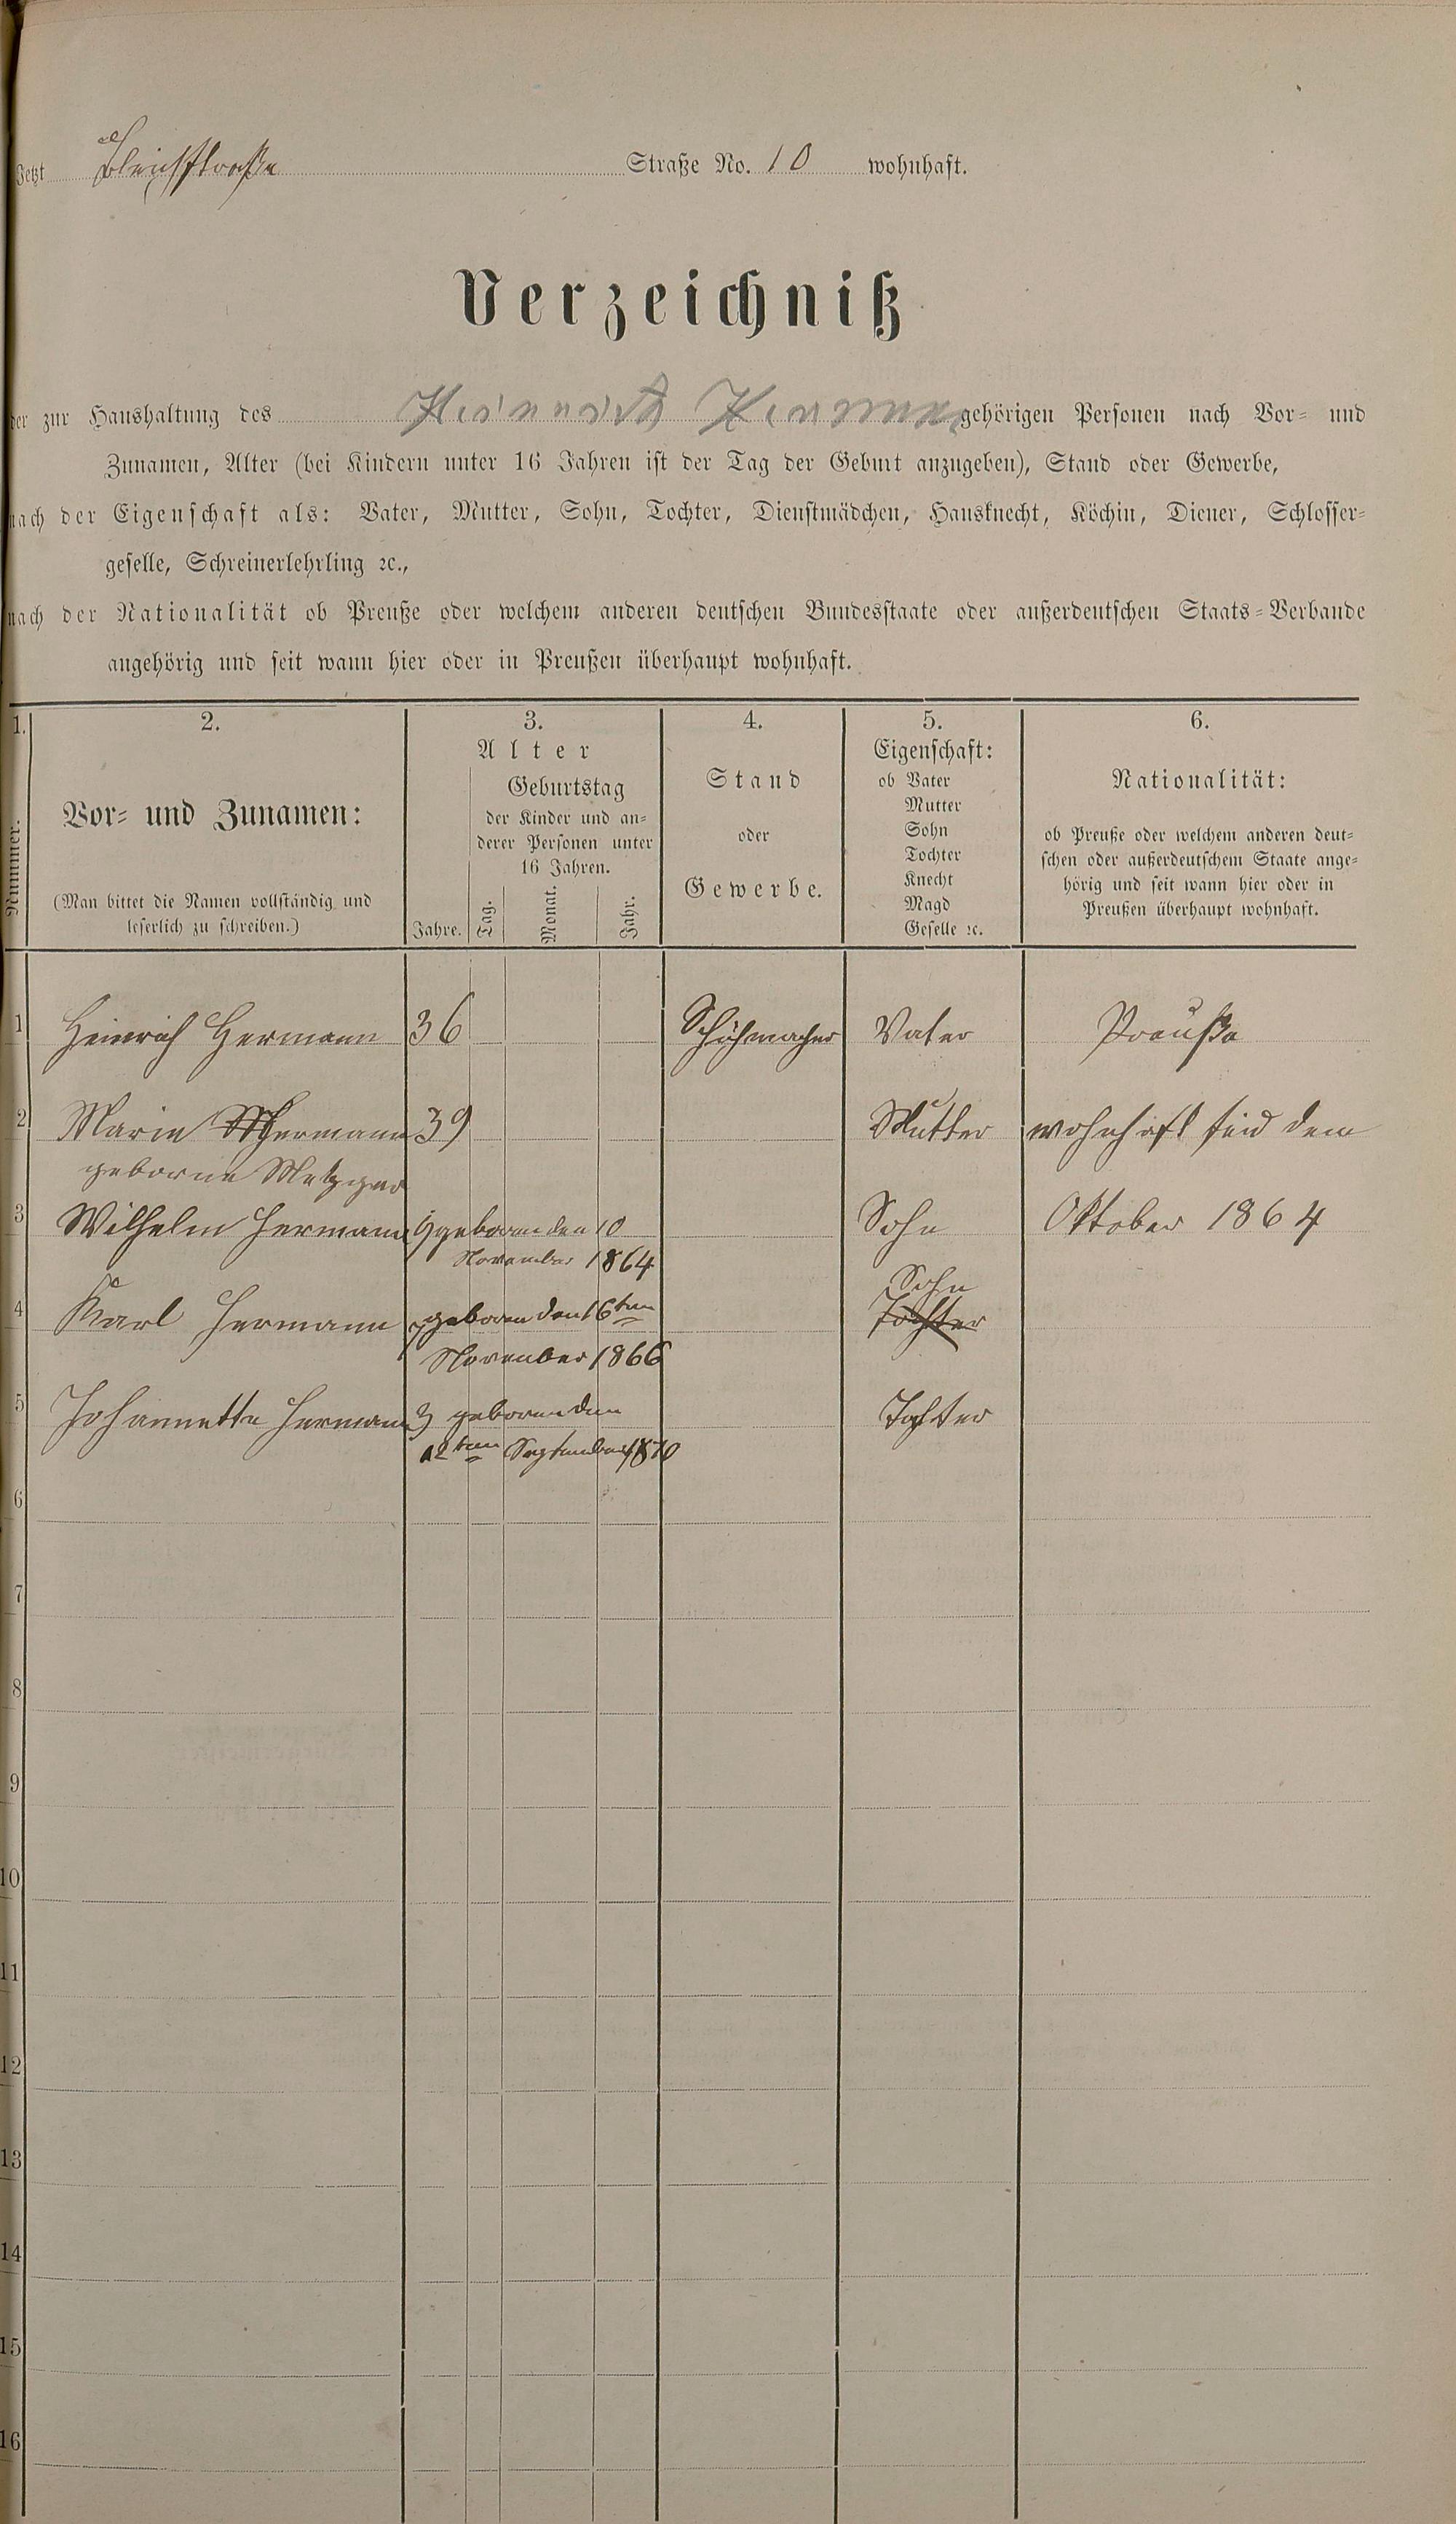 Jetzt Bleichstraße Straße No. 10 wohnhaft.
Verzeichniß
der zur Haushaltung des Heinrich Hermann gehörigen Personen nach Vor- und
Zunamen, Alter (bei Kindern unter 16 Jahren ist der Tag der Geburt anzugeben), Stand oder Gewerbe,
nach der Eigenschaft als: Vater, Mutter, Sohn, Tochter, Dienstmädchen, Hausknecht, Köchin, Diener, Schlosser-
geselle, Schreinerlehrling ꝛc.,
nach der Nationalität ob Preuße oder welchem anderen deutschen Bundesstaate oder außerdeutschen Staats-Verbande
angehörig und seit wann hier oder in Preußen überhaupt wohnhaft.
1. 2. 3. 4. 5. 6.
Nummer.
Vor- und Zunamen:
(Man bittet die Namen vollständig und
leserlich zu schreiben.)
Alter
Geburtstag
der Kinder und an-
derer Personen unter
16 Jahren.
Jahre. Tag. Monat. Jahr.
Stand
oder
Gewerbe.
Eigenschaft:
ob Vater
Mutter
Sohn
Tochter
Knecht
Magd
Geselle ꝛc.
Nationalität:
ob Preuße oder welchem anderen deut-
schen oder außerdeutschem Staate ange-
hörig und seit wann hier oder in
Preußen überhaupt wohnhaft.
1 Heinrich Hermann 36 Schuhmacher Vater Preuße
2 Marie Hermann 39 Mutter wohnhaft seid dem
geborne Metzger
3 Wilhelm Hermann 9 geboren den 10 Sohn Oktober 1864
November 1864
Sohn
4 Karl Hermann 7 geboren den 16ten Tochter
November 1866
5 Johannette Hermann 3 geboren den Tochter
12ten September 1870
6
7
8
9
10
11
12
13
14
15
16